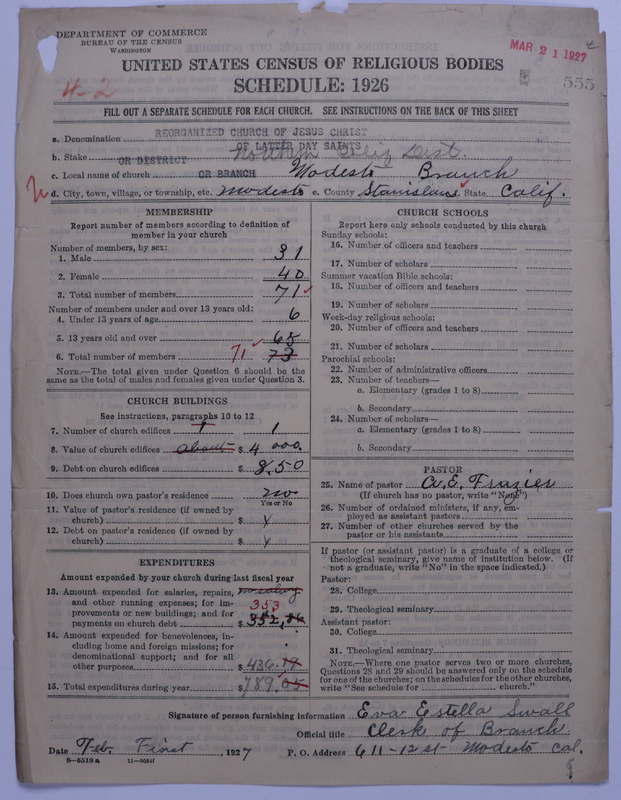 DEPARTMENT OF COMMERCE
BUREAU OF THE CENSUS
WASHINGTON
MAR 21 1927
UNITED STATES CENSUS OF RELIGIOUS BODIES
4-2
SCHEDULE: 1926
555
FILL OUT A SEPARATE SCHEDULE FOR EACH CHURCH. SEE INSTRUCTIONS ON THE BACK OF THIS SHEET
a. Denomination REORGANIZED CHURCH OF JESUS CHRIST
OF LATTER DAY SAINTS
b. Stake OR DISTRICT Northern Calif Dist.
c. Local name of church OR BRANCH Modesto Branch
d. City, town, village, or township, etc. Modesto e. County Stanislaus State Calif.
MEMBERSHIP
Report number of members according to definition of
member in your church
Number of members, by sex:
1. Male 31
2. Female 40
3. Total number of members 71
Number of members under and over 13 years old:
4. Under 13 years of age 6
5. 13 years old and over 65
6. Total number of members 71 73
NOTE.—The total given under Question 6 should be the
same as the total of males and females given under Question 3.
CHURCH BUILDINGS
See instructions, paragraphs 10 to 12
7. Number of church edifices 1 1
8. Value of church edifices about $ 4 000.
9. Debt on church edifices $ 8.50
10. Does church own pastor's residence no
Yes or No
11. Value of pastor's residence (if owned by
church) $ Y
12. Debt on pastor's residence (if owned by
church) $ Y
EXPENDITURES
Amount expended by your church during last fiscal year
13. Amount expended for salaries, repairs,
and other running expenses; for im-
provements or new buildings; and for
payments on church debt 353 $ 352.86
14. Amount expended for benevolences, in-
cluding home and foreign missions; for
denominational support; and for all
other purposes $ 436.19
15. Total expenditures during year $ 789.05
CHURCH SCHOOLS
Report here only schools conducted by this church
Sunday schools:
16. Number of officers and teachers
17. Number of scholars
Summer vacation Bible schools:
18. Number of officers and teachers
19. Number of scholars
Week-day religious schools:
20. Number of officers and teachers
21. Number of scholars
Parochial schools:
22. Number of administrative officers
23. Number of teachers—
a. Elementary (grades 1 to 8)
b. Secondary
24. Number of scholars—
a. Elementary (grades 1 to 8)
b. Secondary
PASTOR
25. Name of pastor A. E. Frazier
(If church has no pastor, write "None")
26. Number of ordained ministers, if any, em-
ployed as assistant pastors
27. Number of other churches served by the
pastor or his assistants
If pastor (or assistant pastor) is a graduate of a college or
theological seminary, give name of institution below. (If
not a graduate, write "No" in the space indicated.)
Pastor:
28. College
29. Theological seminary
Assistant pastor:
30. College
31. Theological seminary
NOTE.—Where one pastor serves two or more churches,
Questions 28 and 29 should be answered only on the schedule
for one of the churches; on the schedules for the other churches,
write "See schedule for church."
Signature of person furnishing information Eva Estella Swall
Official title Clerk of Branch
Date Feb. First, 1927 P. O. Address 611-12 st Modesto Cal.
8-5518 a